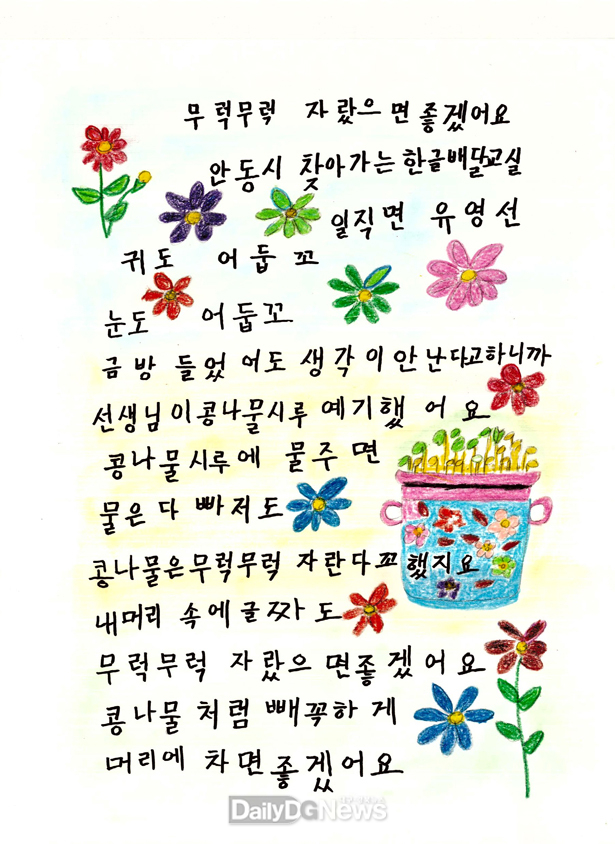 무럭무럭 자랐으면좋겠어요
안동시 찾아가는한글배달교실
일직면 유영선
귀도 어둡꼬
눈도 어둡꼬
금방 들었어도 생각이안난다고하니까
선생님이콩나물시루 예기했어요
콩나물시루에 물주면
물은다 빠저도
콩나물은무럭무럭 자란다꼬했지요
내머리 속에글짜도
무럭무럭 자랐으면좋겠어요
콩나물처럼 빼꼭하게
머리에 차면좋겠어요
DailyDGNews